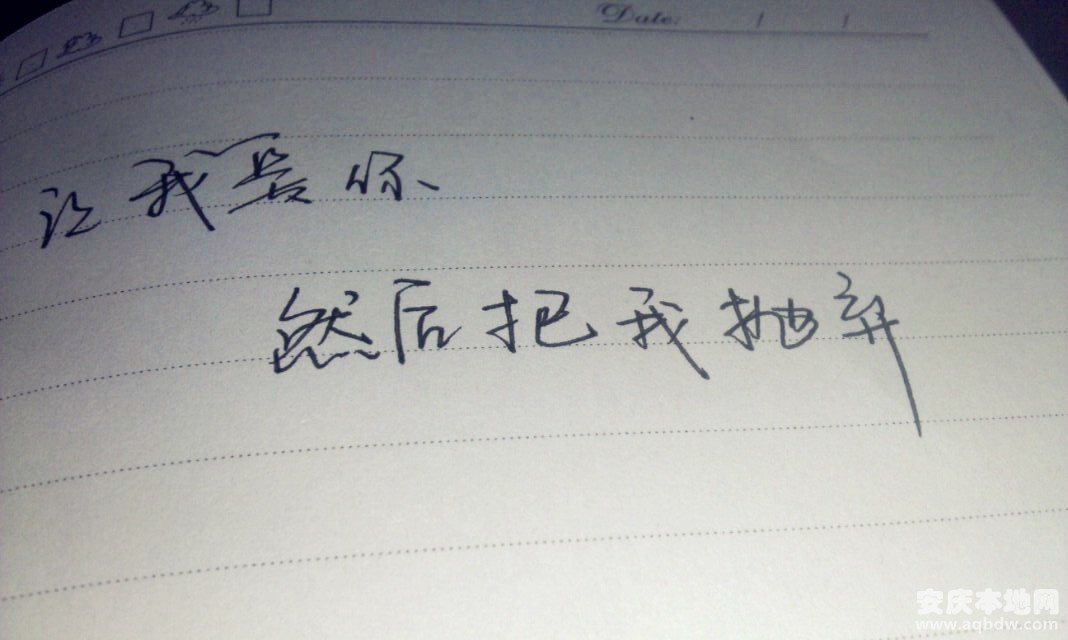 Date: / /
让我爱你、
然后把我抛弃
安庆本地网
www.aqbdw.com